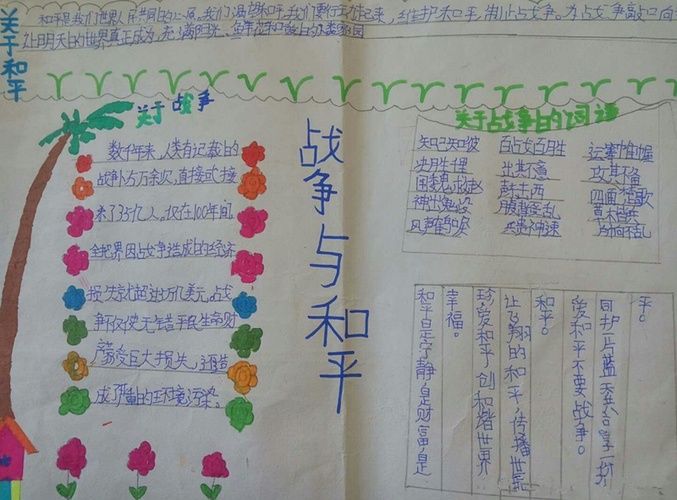 关于和平
和平是我们世界人民共同的心愿,我们渴望和平,我们要行动起来,维护和平,制止战争。为战争敲响
让明天的世界真正成为,充满阳光、鲜花和
关于战争
数千年来,人类有记载的
战争 5万余次,直接或
杀了35亿人。仅在100年间,
全世界因战争造成的经济
损失就超过 万亿美元。战
争不仅使无辜平民生命财
产蒙受巨大损失,还造
成严重的环境污染。
战争与和平
关于战争的词语
知己知彼 百战百胜 运筹帷幄
决胜千里 出其不意 攻其不备
围魏救赵 声东击西 四面楚歌
神出鬼没 腹背受敌 草木皆兵
风声鹤唳 兵贵神速
平。
同护一片蓝天共享一
爱和平不要战争。
和平。
让飞翔的和平,传播世界
珍爱和平创和谐世界
幸福。
和平是宁静,是财富,是